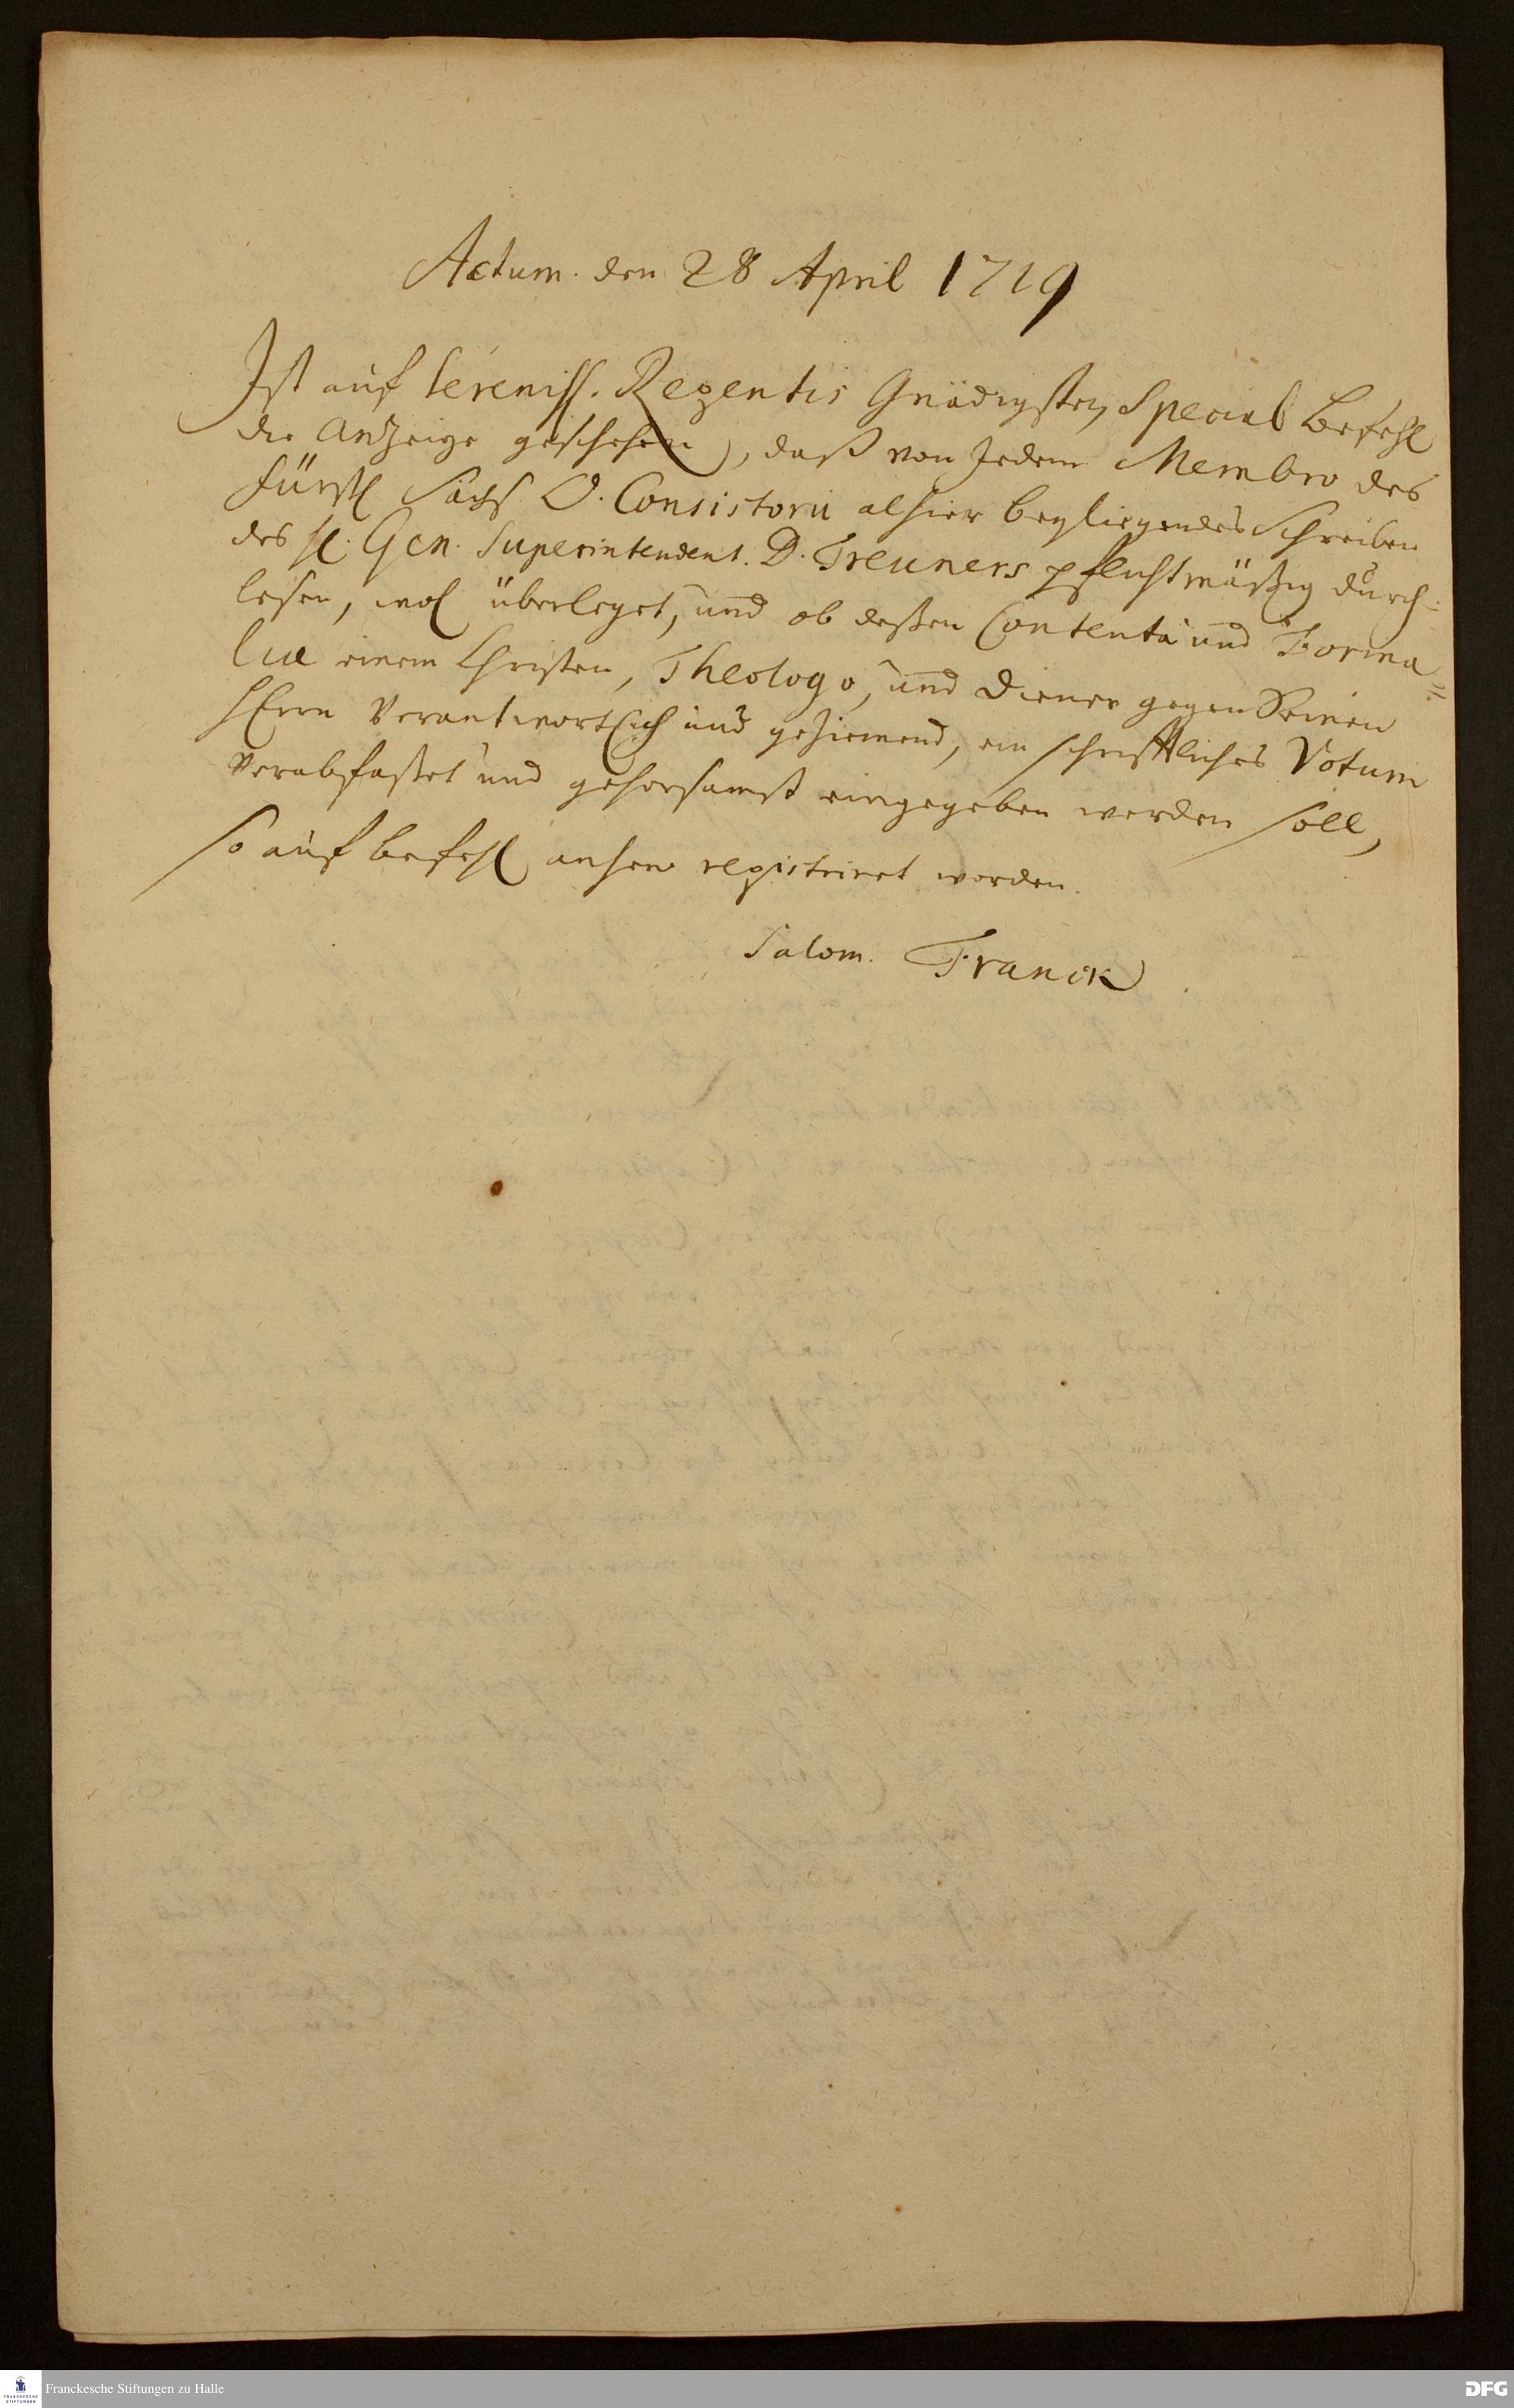 Actum. den 28 April 1719
Ist auf Sereniss. Regentis Gnädigsten Special Befehl
die Anzeige geschehen, daß von Jedem Membro des
Fürstl Sächs O. Consistorii alhier beyliegendes Schreiben
des sl. Gen. Superintendent. D. Treuners pflichtmäßig durch=
lesen, wol überleget, und ob deßen Contenta und Forma=
liae einem Christen, Theologo, und Diener gegen Seinen
HErrn verantwortlich und geziemend, ein schrifftliches Votum
verabfaßet und gehorsamst eingegeben werden soll,
so auf befehl anhero registriret worden.
Salom. Franck
Franckesche Stiftungen zu Halle
DFG